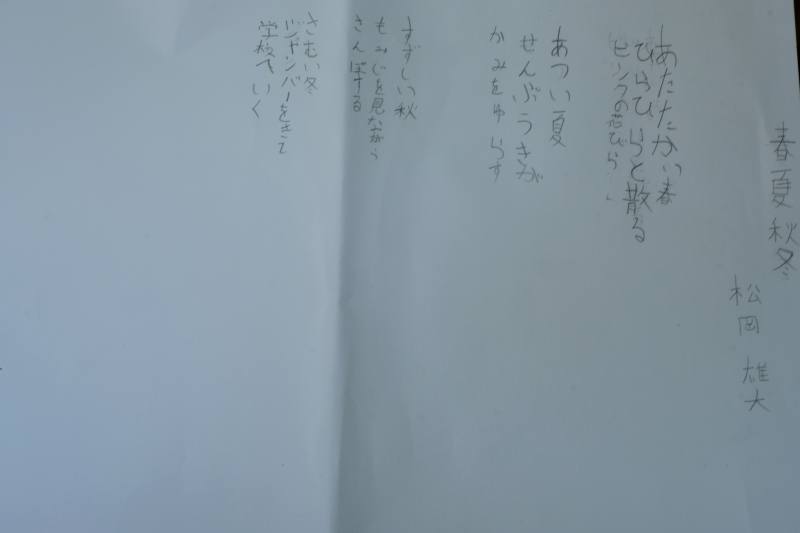 春夏秋冬
松岡 雄大
あたたかい春
ひらひらと散る
ピンクの花びら
あつい夏
せんぷうきが
かみをゆらす
すずしい秋
もみじを見ながら
さんぽする
さむい冬
ジャンバーをきて
学校へいく